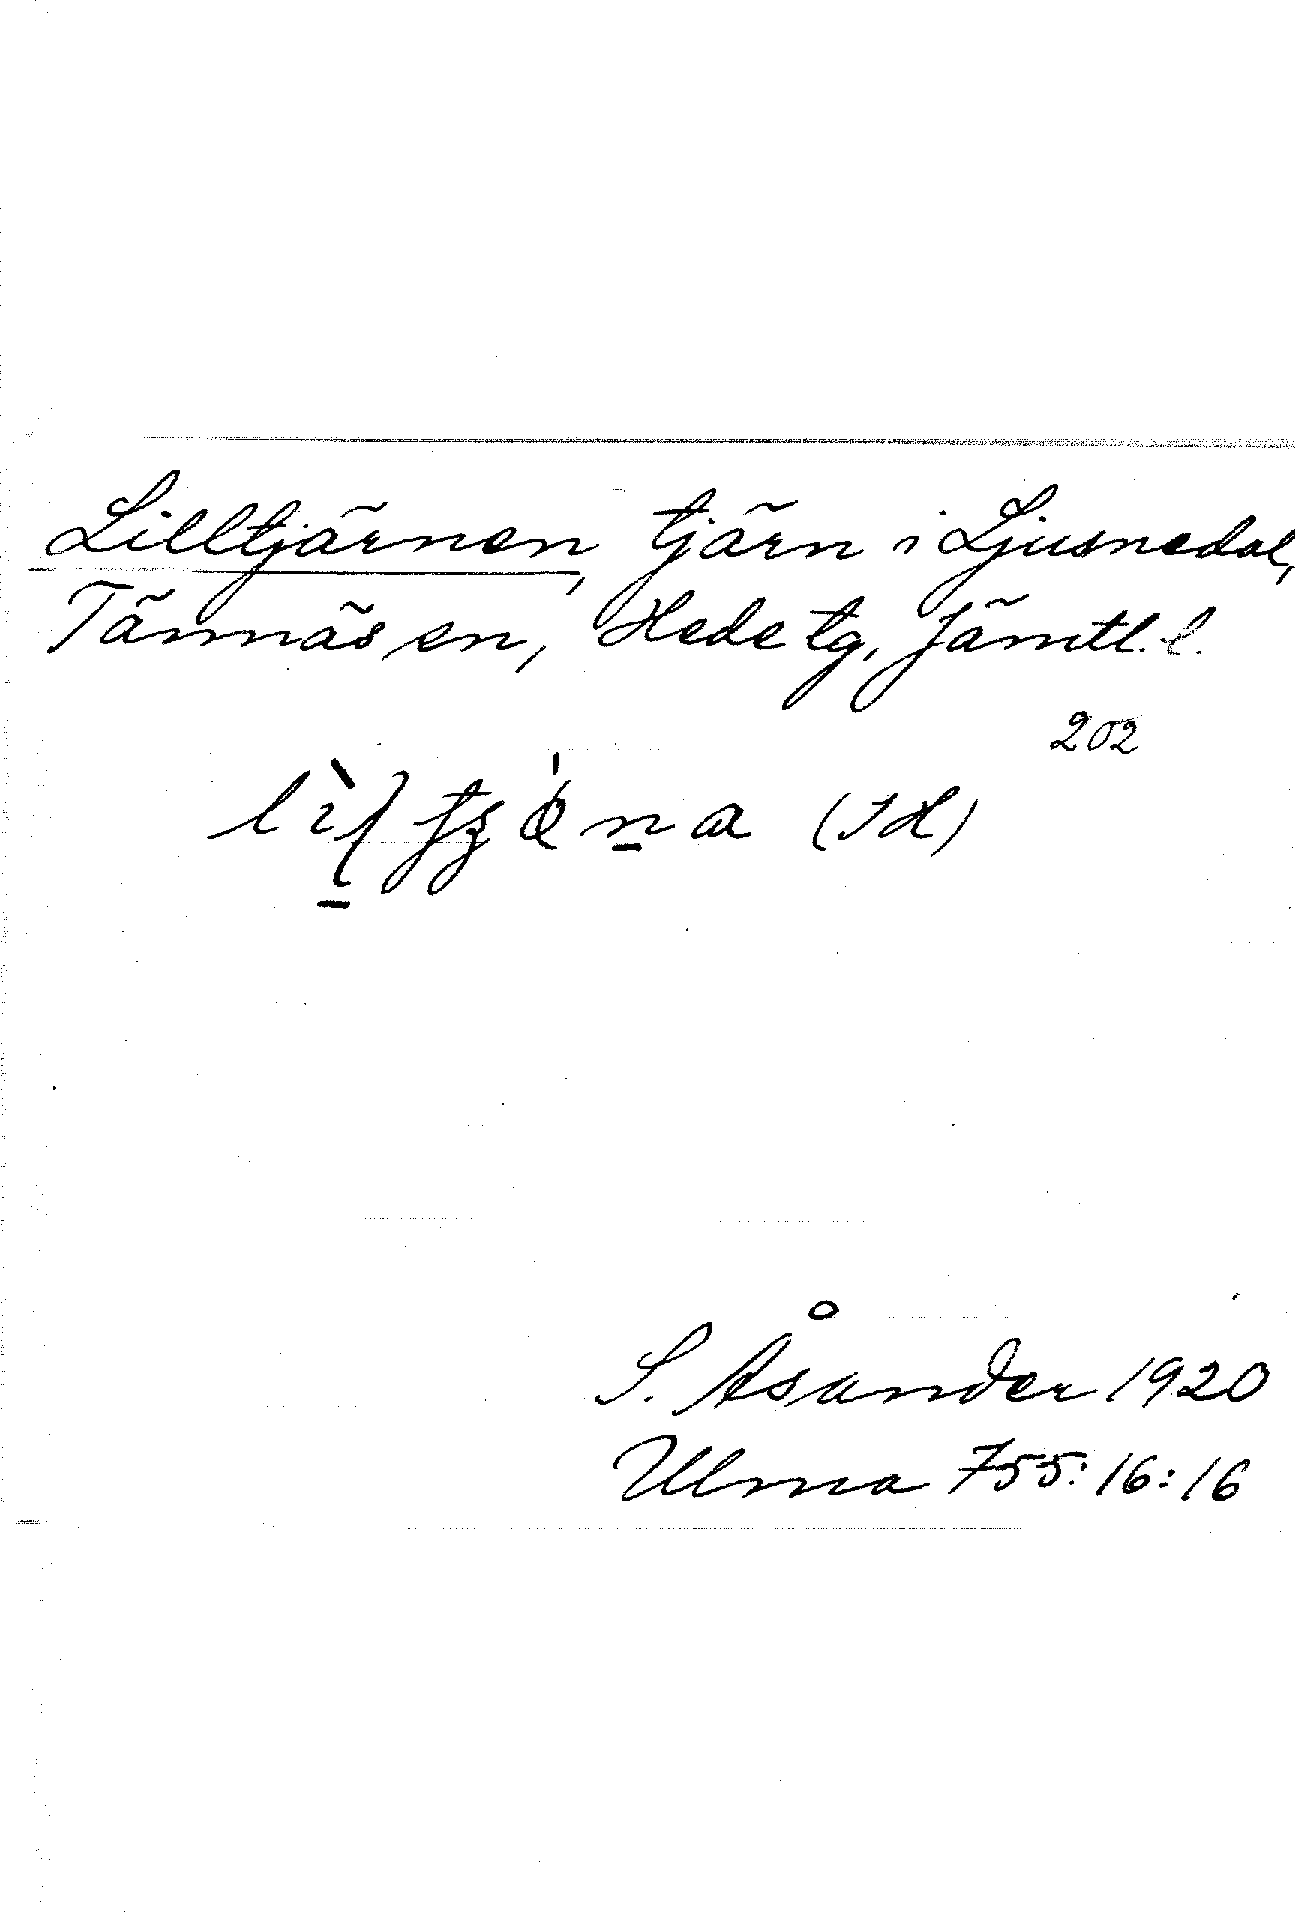 Lilltjärnen, tjärn i Ljusnedal,
Tännäs sn, Hede tg, Jämtl. l.
202
(IH)
S. Åsander 1920
Ulma 755:16:16